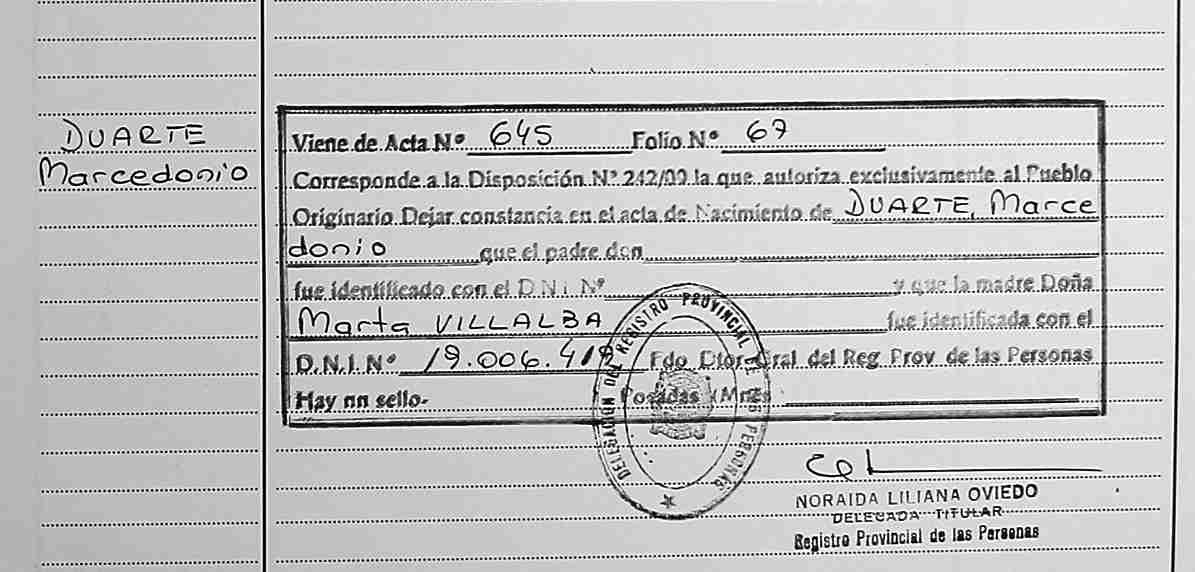 DUARTE
Marcedonio
Viene de Acta Nº 645 Folio Nº 67
Corresponde a la Disposición Nº 242/09 la que autoriza exclusivamente al Pueblo
Originario Dejar constancia en el acta de Nacimiento de DUARTE, Marce
donio que el padre don
fue identificado con el D.N.I. Nº y que la madre Doña
Marta VILLALBA fue identificada con el
D.N.I. Nº 19.006.419 Fdo Dtor Gral del Reg Prov de las Personas
Hay un sello.- Posadas (Mnes
DELEGACION DEL REGISTRO PROVINCIAL DE LAS PERSONAS
NORAIDA LILIANA OVIEDO
DELEGADA TITULAR
Registro Provincial de las Personas